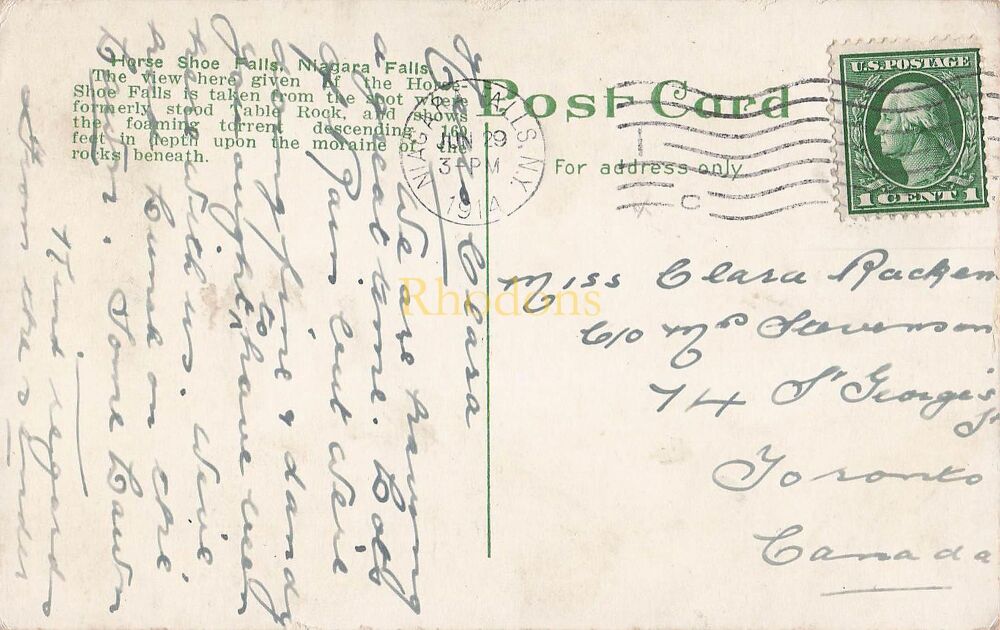 Horse Shoe Falls, Niagara Falls.
The view here given of the Horse-
Shoe Falls is taken from the spot where
formerly stood Table Rock, and shows
the foaming torrent descending 160
feet in depth upon the moraine of the
rocks beneath.
Post Card
For address only
NIAG FALLS, N.Y.
JUN 29
3-PM
1914
U.S. POSTAGE
1 CENT 1
Miss Clara Racken
C/o Mrs Stevenson
74 St George's
St
Toronto
Canada
Dear Clara
We are having
a great time. Lots
of Rain but we're
going fine & dandy
you ought to have been
here with us. We've
a Bunk on the
Train. Some Lawn
Kind regards
from the
Rhodons